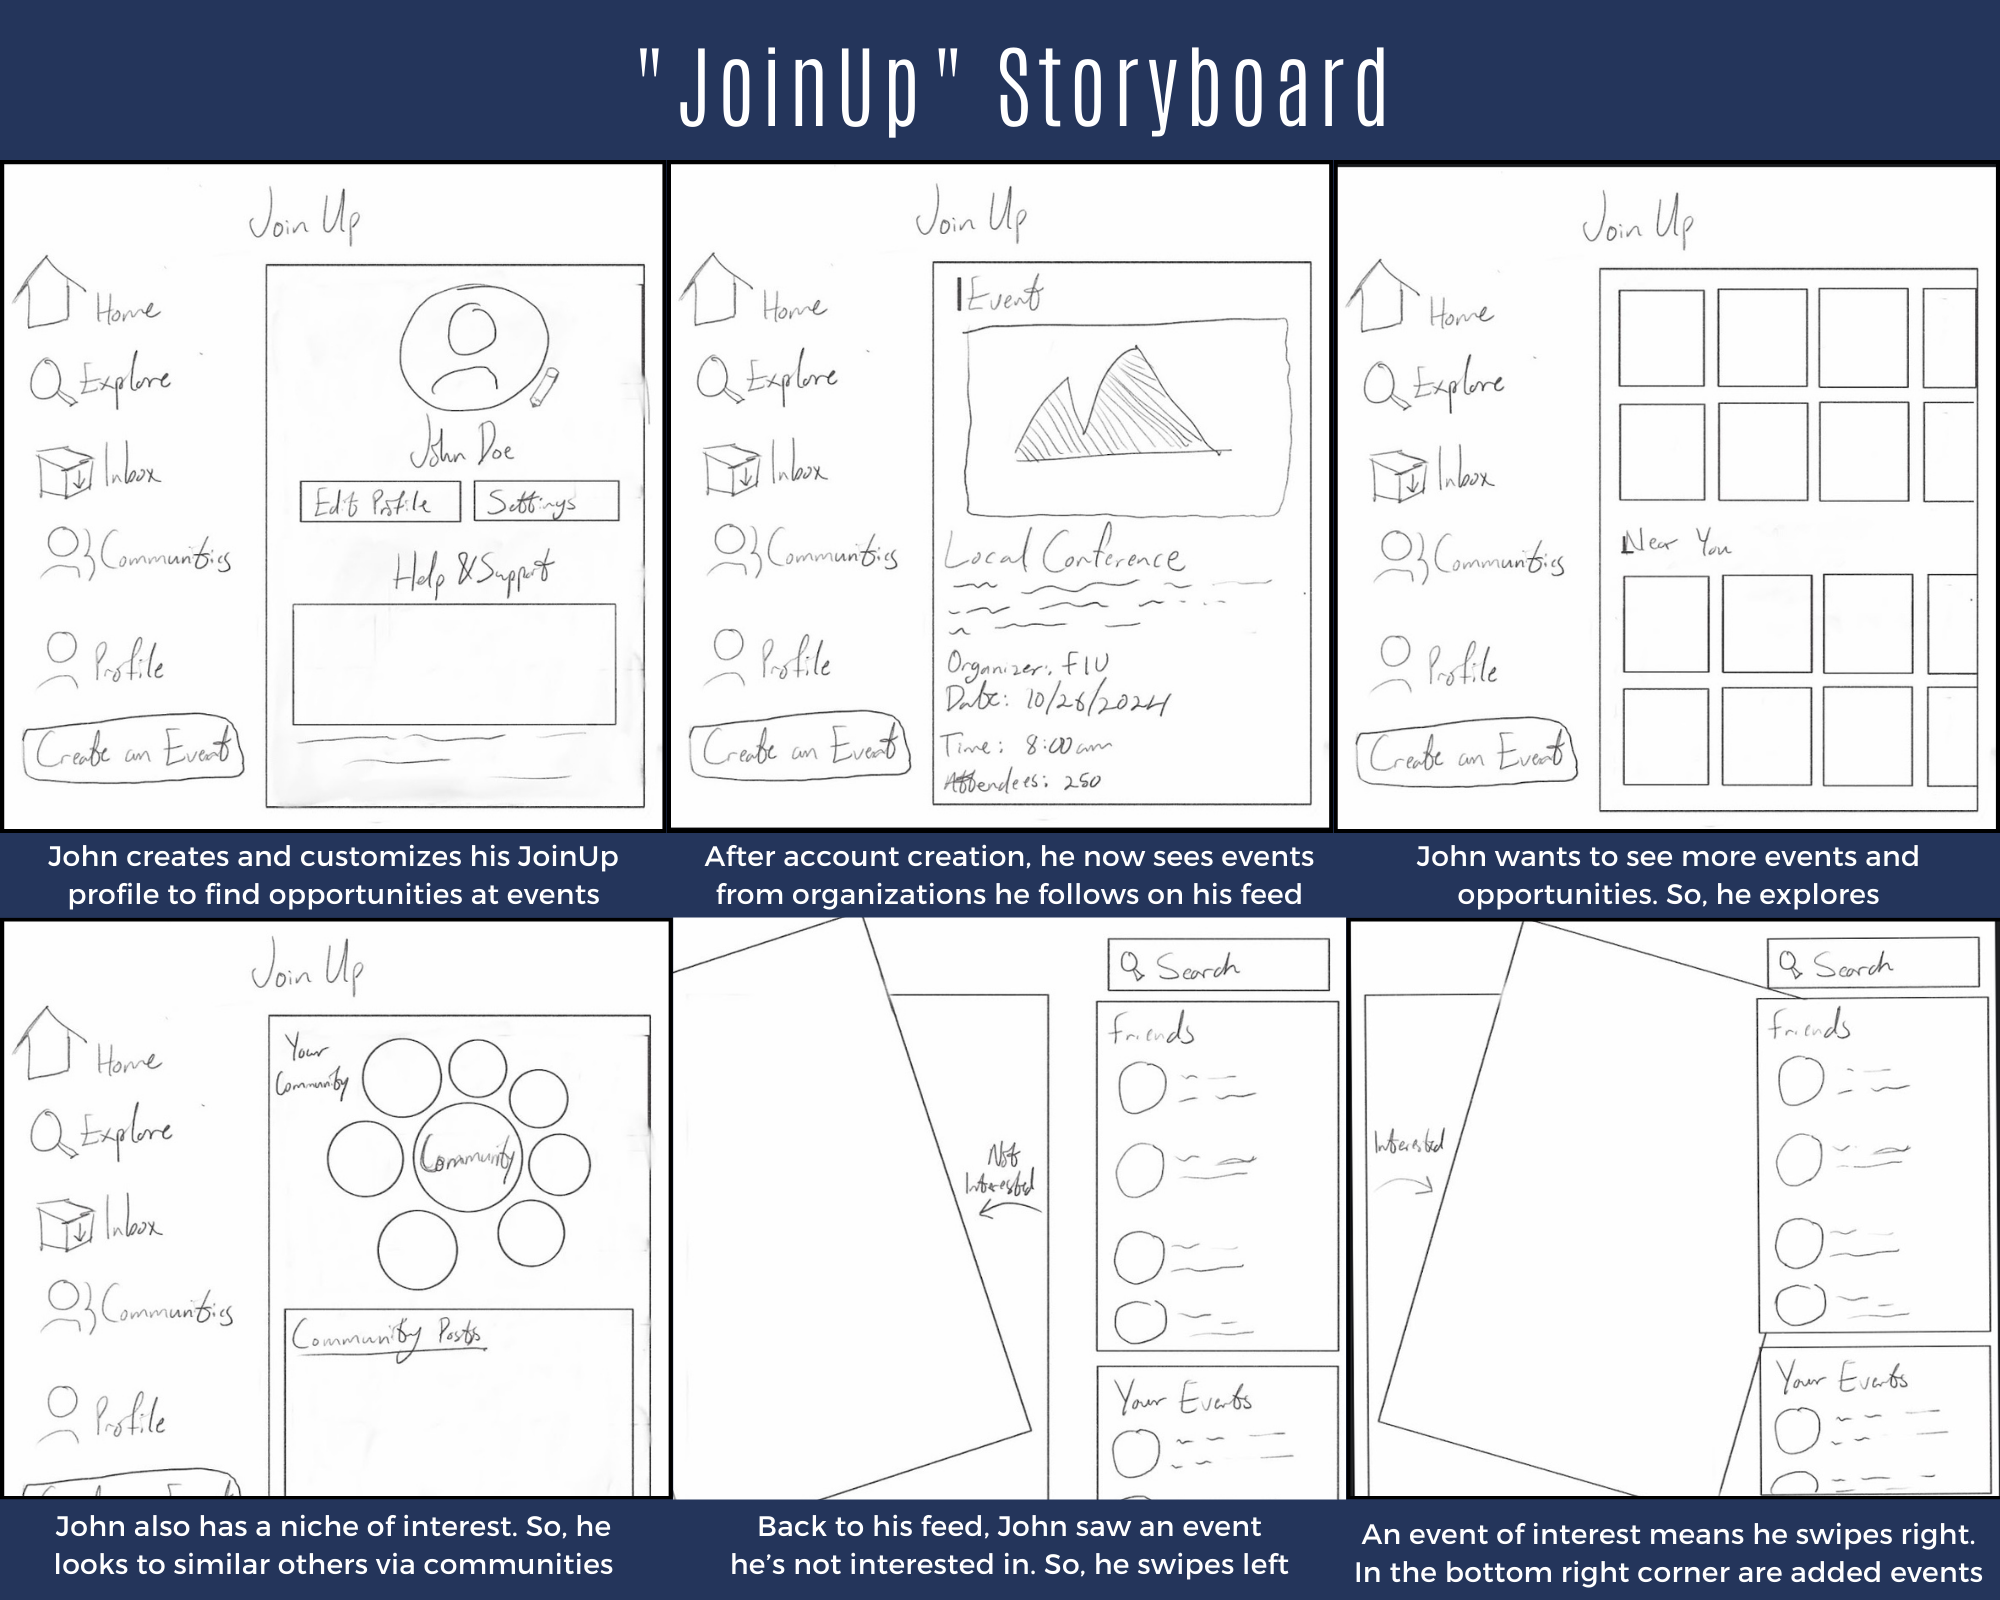 "JoinUp" Storyboard
Join Up
Home
Explore
Inbox
Communities
Profile
Create an Event
John Doe
Edit Profile
Settings
Help & Support
John creates and customizes his JoinUp
profile to find opportunities at events
Join Up
Home
Explore
Inbox
Communities
Profile
Create an Event
Event
Local Conference
Organizer: FIU
Date: 10/26/2024
Time: 8:00am
Attendees: 250
After account creation, he now sees events
from organizations he follows on his feed
Join Up
Home
Explore
Inbox
Communities
Profile
Create an Event
Near You
John wants to see more events and
opportunities. So, he explores
Join Up
Home
Explore
Inbox
Communities
Profile
Your
Community
Community
Community Posts
John also has a niche of interest. So, he
looks to similar others via communities
Search
Friends
Not
Interested
Your Events
Back to his feed, John saw an event
he's not interested in. So, he swipes left
Search
Friends
Interested
Your Events
An event of interest means he swipes right.
In the bottom right corner are added events